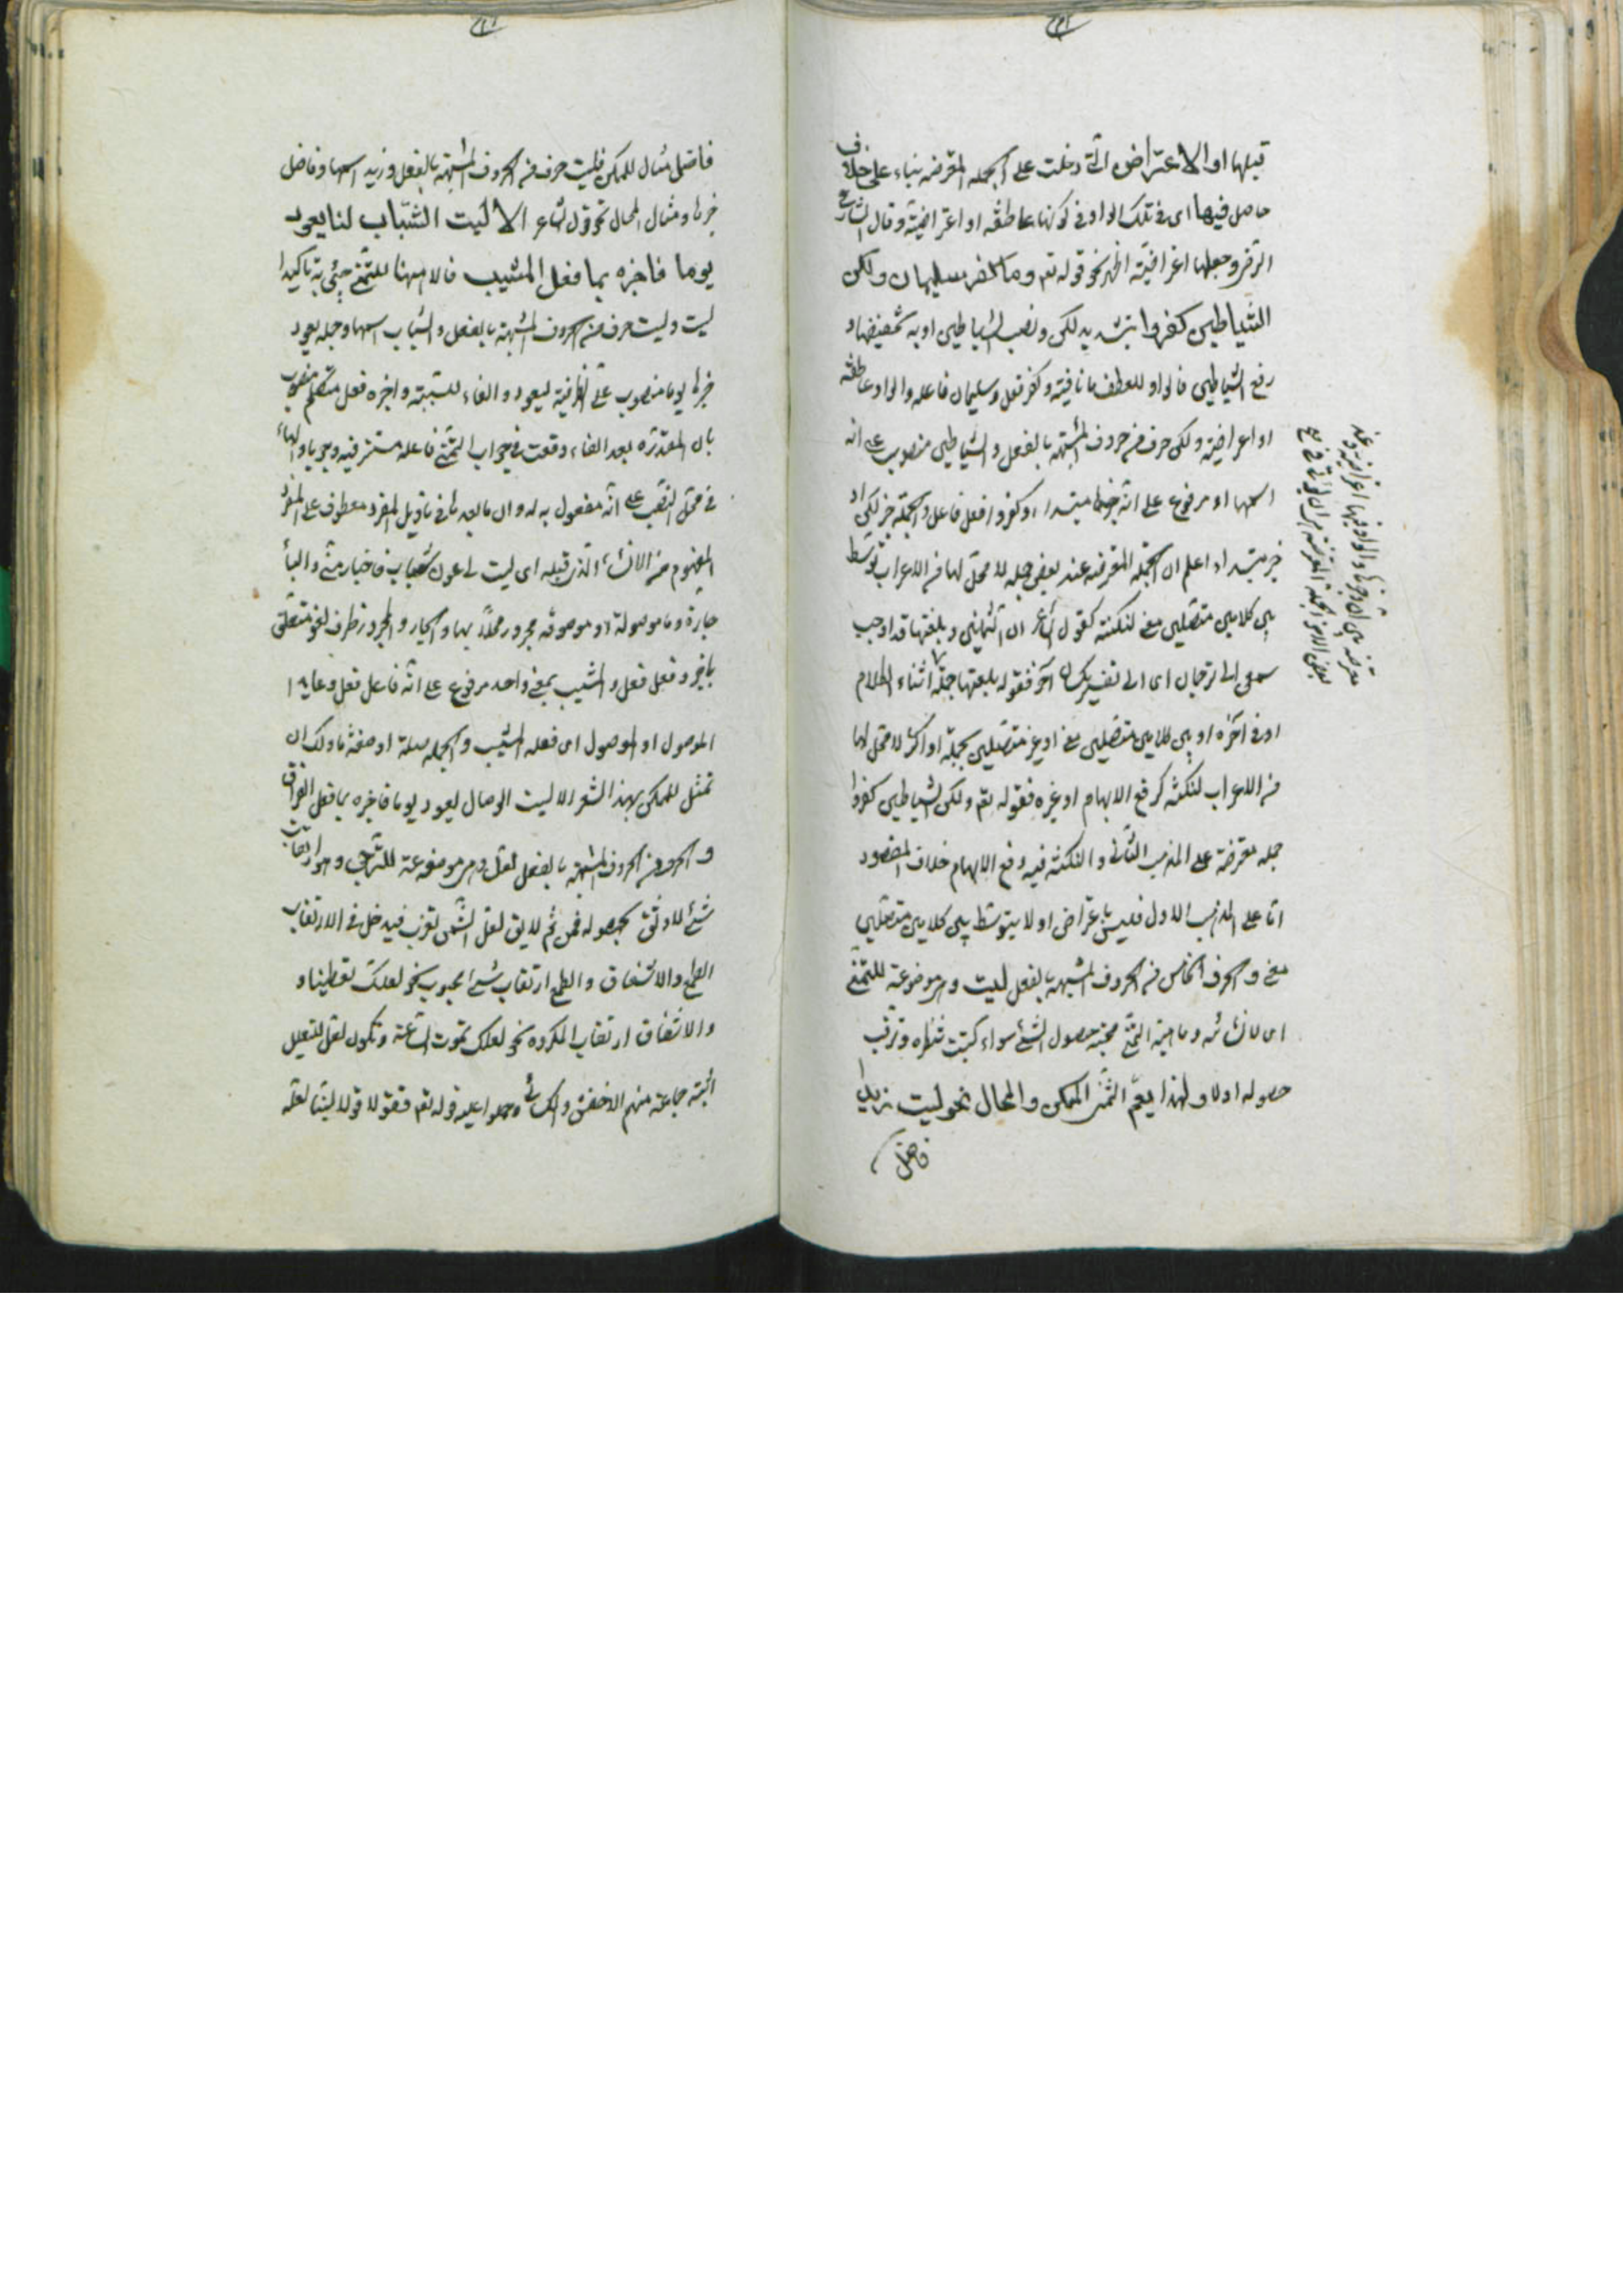 قبلها او الاعتراض التى دخلت على الجملة المعترضة بناء على خلاف
حاصل فيها اى فى تلك الواو فى كونها عاطفة او اعتراضية وقال الشارح
الرضى وجعلها اعتراضية اظهر نحو قوله تعم وما كفر سليمان ولكن
الشياطين كفروا بتشديد لكن ونصب الشياطين او به تخفيفها و
رفع الشياطين فالواو للعطف ما نافية وكفر فعل وسليمان فاعله والواو عاطفة
او اعتراضية ولكن حرف من حروف المشبهة بالفعل والشياطين منصوب على انه
اسمها او مرفوع على انه مبتداء وكفروا فعل فاعل والجملة خبر لكن او
خبر مبتداء اعلم ان الجملة المعترضة عند بعض جملة لا محل لها من الاعراب توسط
بين كلامين متصلين معنى لنكتة كقول الشاعر ان الثمانين وبلغتها قد احوجت
سمعى الى ترجمان اى الى تفسير بلسان آخر فقوله بلغتها جملة اثناء الكلام
او فى آخره او بين كلامين متصلين معنى او غير متصلين بجملة او اكثر لا محل لها
من الاعراب لنكتة كرفع الابهام او غيره فقوله تعم ولكن الشياطين كفروا
جملة معترضة على المذهب الثانى والنكتة فيه دفع الايهام خلاف المقصود
اما على المذهب الاول فليس باعتراض اذ لا يتوسط بين كلامين متصلين
معنى و الحرف الخامس من الحروف المشبهة بالفعل ليت وهى موضوعة للتمنى
اى لانشائه وماهية التمنى محبة حصول الشئ سواء كنت تنتظره وترقب
حصوله اولا ولهذا يعم التمنى الممكن والمحال نحو ليت زيدا
فاضل
فاضل مثال للممكن فليت حرف من الحروف المشبهة بالفعل وزيد اسمها وفاضل
خبرها ومثال المحال نحو قول الشاعر الا ليت الشباب لنا يعود
يوما فاخبره بما فعل المشيب فالا ههنا للتمنى جئ به تاكيدا
ليت وليت حرف من الحروف المشبهة بالفعل والشباب اسمها وجملة يعود
خبرها يوما منصوب على الظرفية ليعود والفاء للسببية واخبره فعل متكلم منصوب
بان المقدرة بعد الفاء وقعت فى جواب التمنى فاعله مستتر فيه وجوبا والهاء
فى محل النصب على انه مفعول به له وان ما بعدها فى تاويل المفرد معطوف على المفرد
المفهوم من الانشاء الذى قبله اى ليت لى عود شباب فاخبار منى والباء
جارة وما موصولة او موصوفة مجرور محلا بها والجار والمجرور ظرف لغو متعلق
باخبر وفعل فعل والمشيب بمعنى واحد مرفوع على انه فاعل فعل وعايد
الموصول او الموصول اى فعله المشيب والجملة صلة او صفة ما ولك ان
تمثل للممكن بهذا الشعر الا ليت الوصال ليعود يوما فاخبره بما فعل الفراق
و الحرف من الحروف المشبهة بالفعل لعل وهى موضوعة للترجى وهو ارتقاب
شئ لا وثوق بحصوله فمن ثم لا يق لعل الشمس تغرب فيدخل فى الارتقاب
الطمع والاشفاق والطمع ارتقاب شئ محبوب نحو لعلك تعطينا و
والاشفاق ارتقاب المكروه نحو لعلك تموت الساعة وتكون لعل للتعليل
اثبته جماعة منهم الاخفش والكسائى وحملوا عليه قوله تعم فقولا له قولا لينا لعله